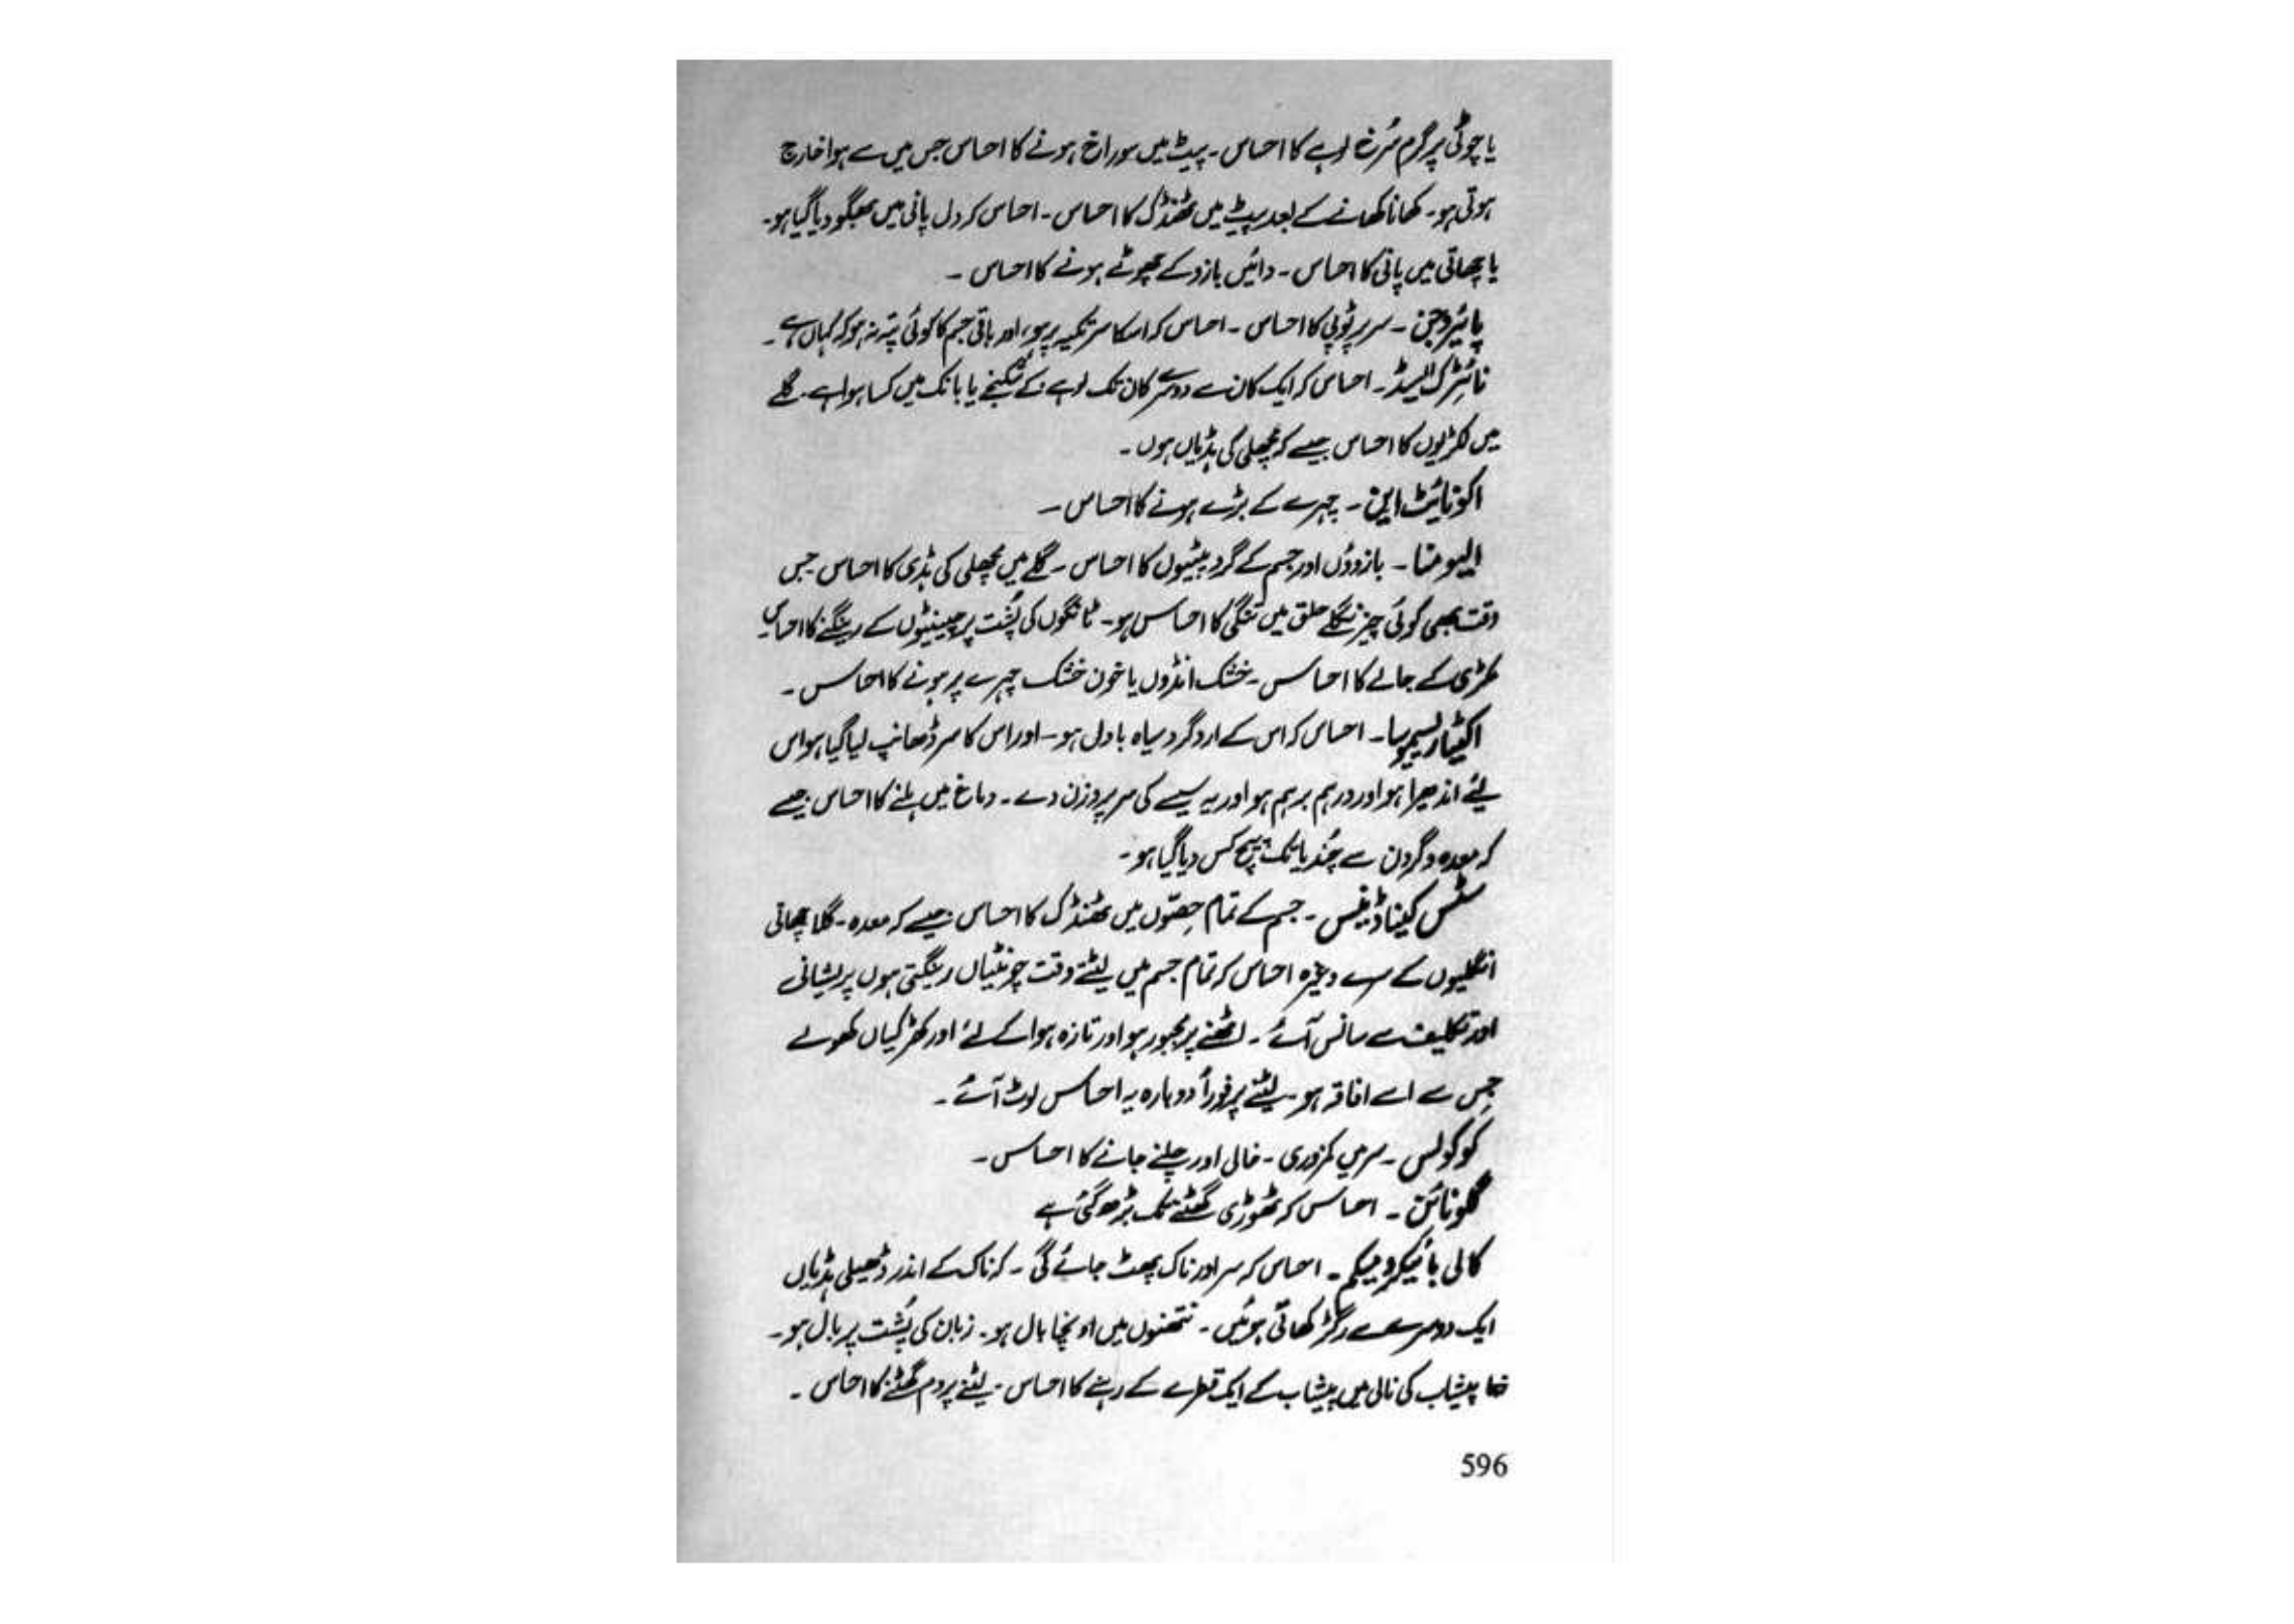 یا چوٹی پر گرم سُرخ لوہے کا احساس۔ پیٹ میں سوراخ ہونے کا احساس جس میں سے ہوا خارج
ہوتی ہو۔ کھانا کھانے کے بعد پیٹ میں ٹھنڈک کا احساس۔ احساس کہ دل پانی میں بھگو دیا گیا ہو۔
یا چھاتی میں پانی کا احساس۔ دائیں بازو کے چھوٹے ہونے کا احساس۔
پائیروجن۔ سر پر ٹوپی کا احساس۔ احساس کہ اسکا سر تکیہ پر ہو، اور باقی جسم کا کوئی پتہ نہ ہو کہ کہاں ہے۔
نائٹرک ایسڈ۔ احساس کہ ایک کان سے دوسرے کان تک لوہے کے شکنجے یا بانک میں کسا ہوا ہے۔ گلے
میں لکڑیوں کا احساس جیسے کہ مچھلی کی ہڈیاں ہوں۔
اکونائیٹ این۔ چہرے کے بڑے ہونے کا احساس۔
الیومنا۔ بازوؤں اور جسم کے گرد پیٹیوں کا احساس۔ گلے میں مچھلی کی ہڈی کا احساس جس
وقت بھی کوئی چیز نگلے حلق میں تنگی کا احساس ہو۔ ٹانگوں کی پُشت پر چیونٹیوں کے رینگنے کا احساس
مکڑی کے جالے کا احساس۔ خشک انڈوں یا خون خشک چہرے پر ہونے کا احساس۔
اکٹیا ریسیموسا۔ احساس کہ اس کے ارد گرد سیاہ بادل ہو۔ اور اس کا سر ڈھانپ لیا گیا ہو اس
لئے اندھیرا ہو اور درہم برہم ہو اور یہ سیسے کی سر پر وزن دے۔ دماغ میں ہلنے کا احساس جیسے
کہ معدہ و گردن سے چُندیا تک پیچ کس دیا گیا ہو۔
سٹس کیناڈینس۔ جسم کے تمام حصّوں میں ٹھنڈک کا احساس جیسے کہ معدہ۔ گلا چھاتی
انگلیوں کے سرے وغیرہ احساس کہ تمام جسم میں لیٹتے وقت چونٹیاں رینگتی ہوں پریشانی
اور تکلیف سے سانس آئے۔ اٹھنے پر مجبور ہو اور تازہ ہوا کے لئے اور کھڑکیاں کھولے
جس سے اسے افاقہ ہو۔ لیٹنے پر فوراً دوبارہ یہ احساس لوٹ آئے۔
کوکولس۔ سر میں کمزوری۔ خالی اور چلنے جانے کا احساس۔
گلونائن۔ احساس کہ ٹھوڑی گھٹنے تک بڑھ گئی ہے
کالی بائیکرومیکم۔ احساس کہ سر اور ناک پھٹ جائے گی۔ کہ ناک کے اندر ڈھیلی ہڈیاں
ایک دوسرے سے رگڑ کھاتی ہوئیں۔ نتھنوں میں اونچا بال ہو۔ زبان کی پُشت پر بال ہو۔
پیشاب کی نالی میں پیشاب کے ایک قطرے کے رہنے کا احساس۔ لیٹنے پر دم گھٹنے کا احساس۔
596